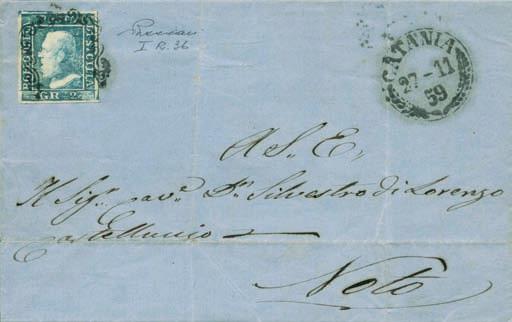 BOLLO DELLA POSTA DI SICILIA
GR. 2
I R. 36
CATANIA
27-11
59
A S. E.
Il Sig. cav. Dn. Silvestro di Lorenzo
Castelluccio
Noto